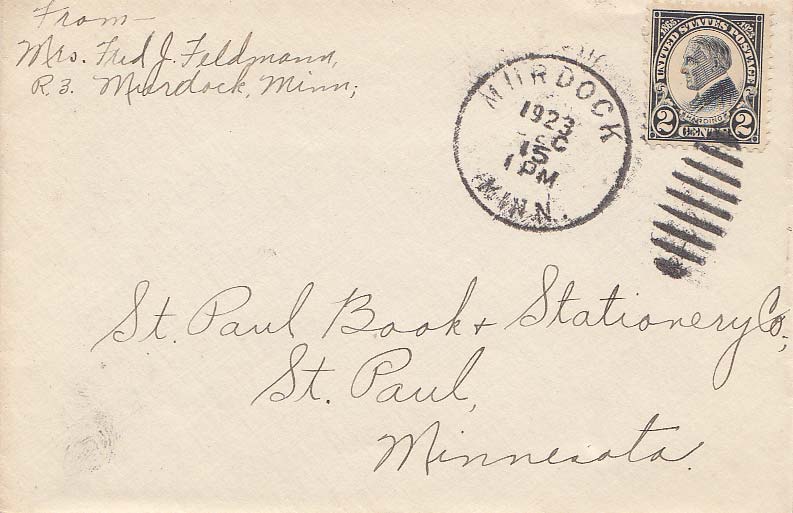 From—
Mrs. Fred J. Feldmann,
R. 3. Murdock, Minn;
MURDOCK
1923
DEC
15
1 PM
MINN.
UNITED STATES POSTAGE
1865 1923
HARDING
2 CENTS 2
St. Paul Book & Stationery Co.,
St. Paul,
Minnesota.